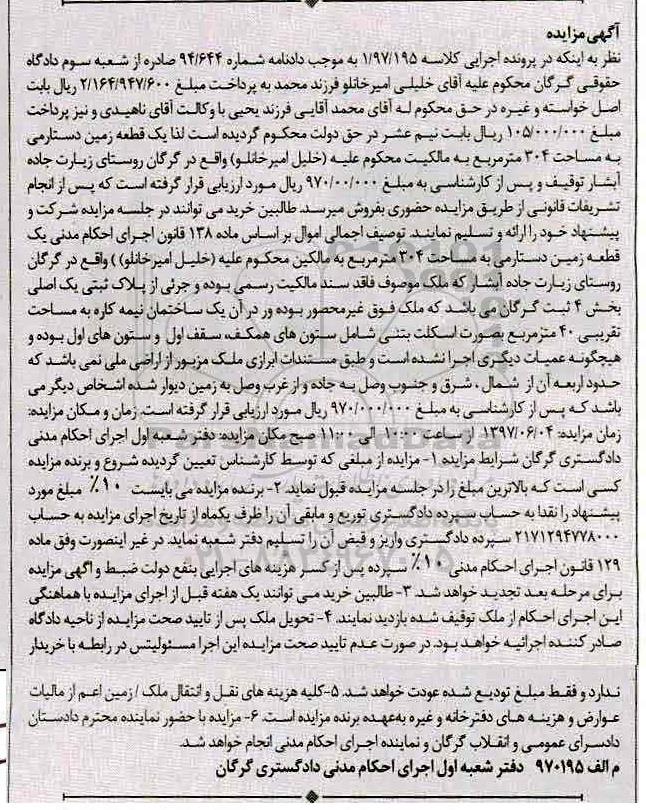 آگهی مزایده
نظر به اینکه در پرونده اجرایی کلاسه ۱/۹۷/۱۹۵ به موجب دادنامه شماره ۹۴/۶۴۴ صادره از شعبه سوم دادگاه
حقوقی گرگان محکوم علیه آقای خلیلی امیرخانلو فرزند محمد به پرداخت مبلغ ۲/۱۶۴/۹۴۷/۶۰۰ ریال بابت
اصل خواسته و غیره در حق محکوم له آقای محمد آقایی فرزند یحیی با وکالت آقای ناهیدی و نیز پرداخت
مبلغ ۱۰۵/۰۰۰/۰۰۰ ریال بابت نیم عشر در حق دولت محکوم گردیده است لذا یک قطعه زمین دستارمی
به مساحت ۳۰۴ مترمربع به مالکیت محکوم علیه (خلیل امیرخانلو) واقع در گرگان روستای زیارت جاده
آبشار توقیف و پس از کارشناسی به مبلغ ۹۷۰/۰۰/۰۰۰ ریال مورد ارزیابی قرار گرفته است که پس از انجام
تشریفات قانونی از طریق مزایده حضوری بفروش میرسد. طالبین خرید می توانند در جلسه مزایده شرکت و
پیشنهاد خود را ارائه و تسلیم نمایند. توصیف اجمالی اموال بر اساس ماده ۱۳۸ قانون اجرای احکام مدنی یک
قطعه زمین دستارمی به مساحت ۳۰۴ مترمربع به مالکین محکوم علیه (خلیل امیرخانلو) ) واقع در گرگان
روستای زیارت جاده آبشار که ملک موصوف فاقد سند مالکیت رسمی بوده و جزئی از پلاک ثبتی یک اصلی
بخش ۴ ثبت گرگان می باشد که ملک فوق غیرمحصور بوده ور در آن یک ساختمان نیمه کاره به مساحت
تقریبی ۴۰ مترمربع بصورت اسکلت بتنی شامل ستون های همکف، سقف اول و ستون های اول بوده و
هیچگونه عمیات دیگری اجرا نشده است و طبق مستندات ابرازی ملک مزبور از اراضی ملی نمی باشد که
حدود اربعه آن از شمال ، شرق و جنوب وصل به جاده و از غرب وصل به زمین دیوار شده اشخاص دیگر می
باشد که پس از کارشناسی به مبلغ ۹۷۰/۰۰۰/۰۰۰ ریال مورد ارزیابی قرار گرفته است. زمان و مکان مزایده:
زمان مزایده: ۱۳۹۷/۰۶/۰۴ از ساعت ۱۰:۰۰ الی ۱۱:۰۰ صبح مکان مزایده: دفتر شعبه اول اجرای احکام مدنی
دادگستری گرگان شرایط مزایده ۱- مزایده از مبلغی که توسط کارشناس تعیین گردیده شروع و برنده مزایده
کسی است که بالاترین مبلغ را در جلسه مزایده قبول نماید. ۲- برنده مزایده می بایست ۱۰٪ مبلغ مورد
پیشنهاد را نقدا به حساب سپرده دادگستری توریع و مابقی آن را ظرف یکماه از تاریخ اجرای مزایده به حساب
۲۱۷۱۲۹۴۷۷۸۰۰۰ سپرده دادگستری واریز و قبض آن را تسلیم دفتر شعبه نماید. در غیر اینصورت وفق ماده
۱۲۹ قانون اجرای احکام مدنی ۱۰٪ سپرده پس از کسر هزینه های اجرایی بنفع دولت ضبط و اگهی مزایده
برای مرحله بعد تجدید خواهد شد. ۳- طالبین خرید می توانند یک هفته قبل از اجرای مزایده با هماهنگی
این اجرای احکام از ملک توقیف شده بازدید نمایند. ۴- تحویل ملک پس از تایید صحت مزایده از ناحیه دادگاه
صادر کننده اجرائیه خواهد بود. در صورت عدم تایید صحت مزایده این اجرا مسئولیتس در رابطه با خریدار
ندارد و فقط مبلغ تودیع شده عودت خواهد شد. ۵-کلیه هزینه های نقل و انتقال ملک / زمین اعم از مالیات
عوارض و هزینه های دفترخانه و غیره به‌عهده برنده مزایده است. ۶- مزایده با حضور نماینده محترم دادستان
دادسرای عمومی و انقلاب گرگان و نماینده اجرای احکام مدنی انجام خواهد شد.
م الف ۹۷۰۱۹۵ دفتر شعبه اول اجرای احکام مدنی دادگستری گرگان